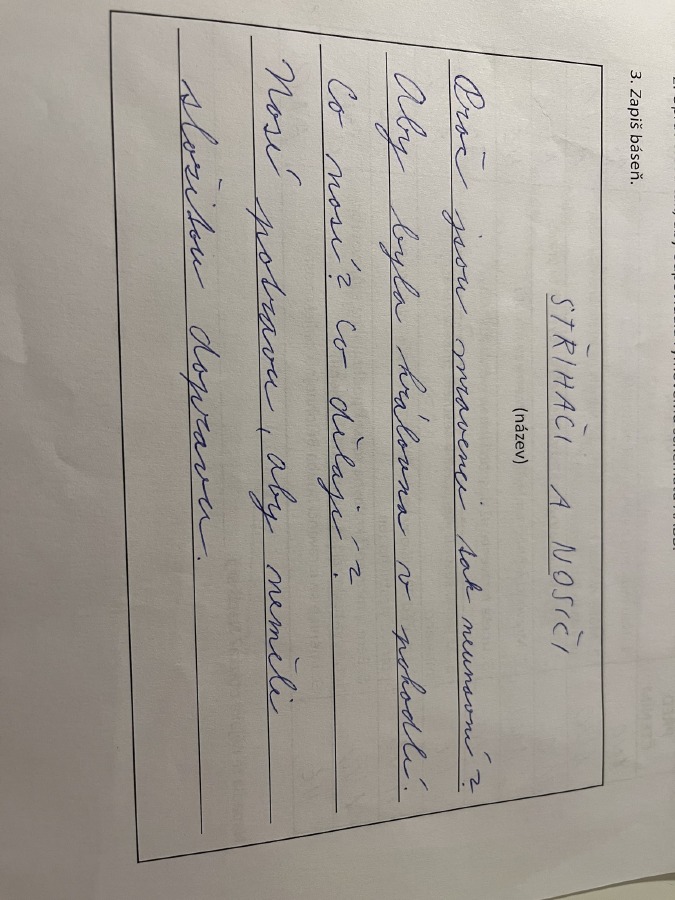 3. Zapiš báseň.
STŘIHAČI A NOSIČI
(název)
Proč jsou mravenci tak neunavní?
Aby byla královna v pohodlí.
Co nosí? Co dělají?
Nosí potravu, aby neměli
složitou dopravu.